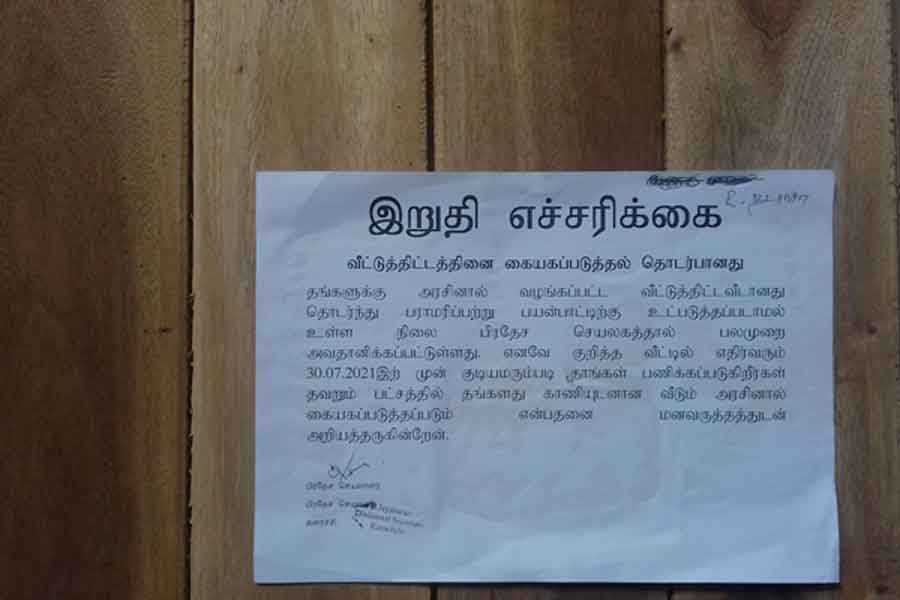 இறுதி எச்சரிக்கை
வீட்டுத்திட்டத்தினை கையகப்படுத்தல் தொடர்பானது
தங்களுக்கு அரசினால் வழங்கப்பட்ட வீட்டுத்திட்டவீடானது
தொடர்ந்து பராமரிப்பற்று பயன்பாட்டிற்கு உட்படுத்தப்படாமல்
உள்ள நிலை பிரதேச செயலகத்தால் பலமுறை
அவதானிக்கப்பட்டுள்ளது. எனவே குறித்த வீட்டில் எதிர்வரும்
30.07.2021இற் முன் குடியமரும்படி தாங்கள் பணிக்கப்படுகிறீர்கள்
தவறும் பட்சத்தில் தங்களது காணியுடனான வீடும் அரசினால்
கையகப்படுத்தப்படும் என்பதனை மனவருத்தத்துடன்
அறியத்தருகின்றேன்.
பிரதேச செயலாளர்
பிரதேச